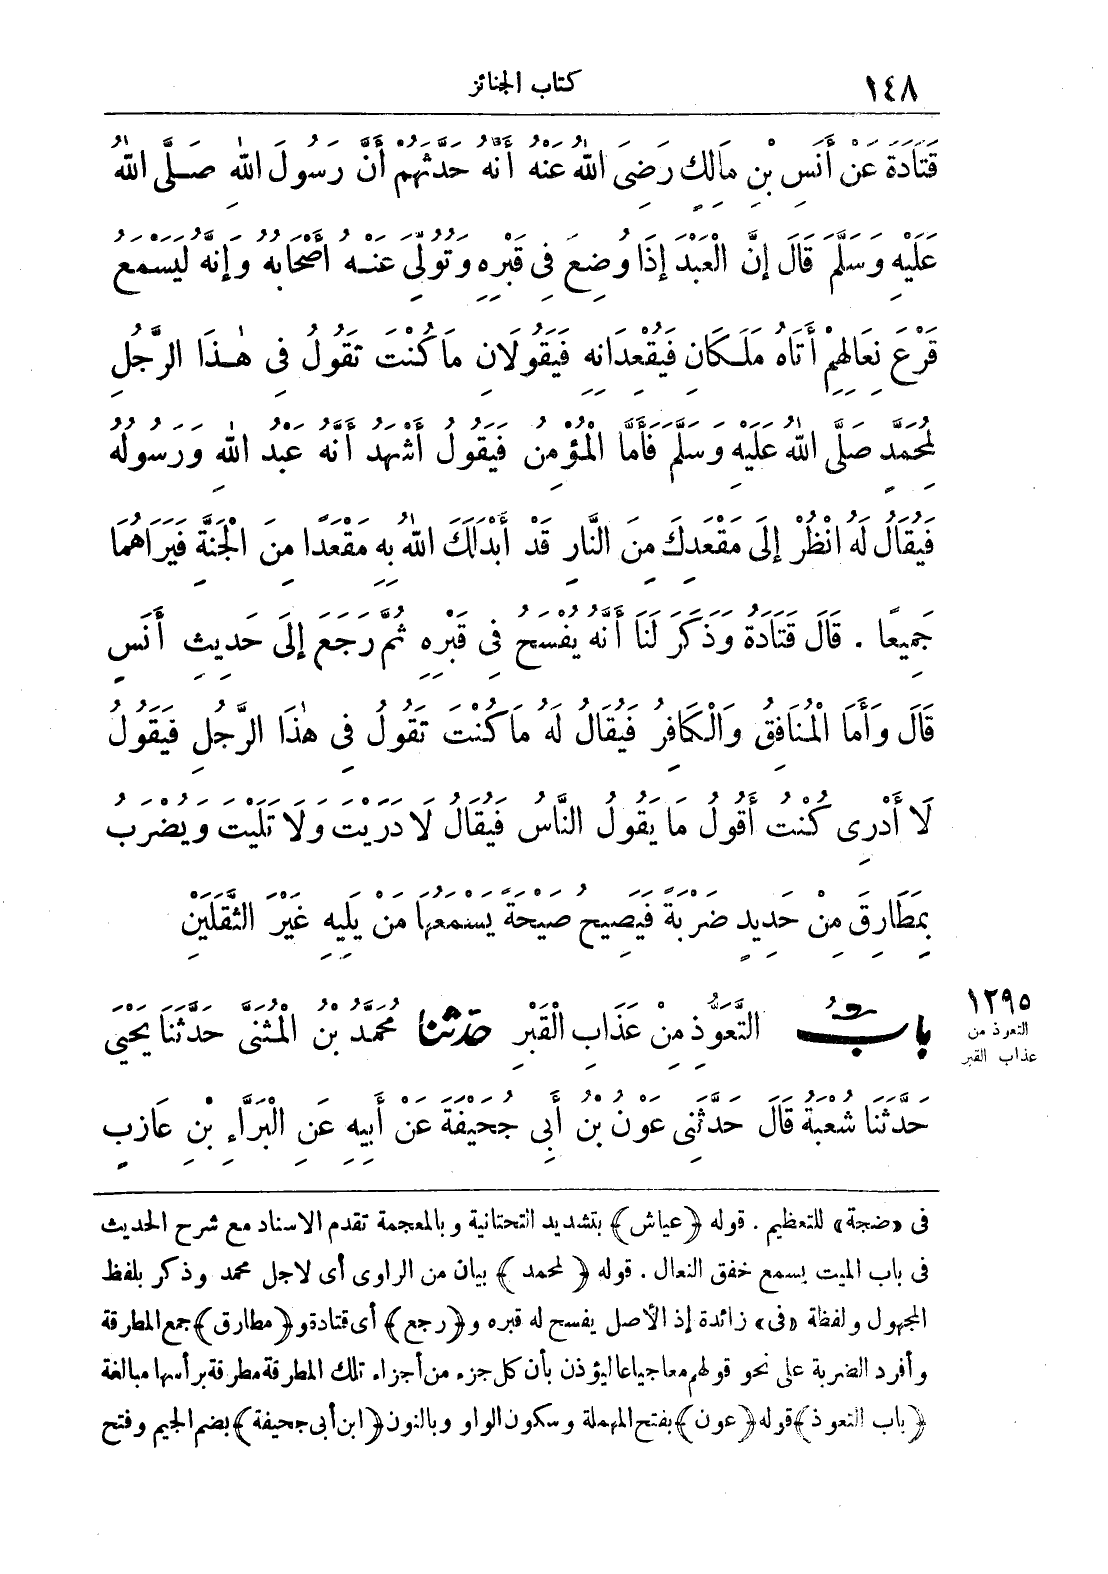 ١٤٨ كتاب الجنائز
قَتَادَةَ عَنْ أَنَسِ بْنِ مَالِكٍ رَضِىَ اللهُ عَنْهُ أَنَّهُ حَدَّثَهُمْ أَنَّ رَسُولَ اللهِ صَلَّى اللهُ
عَلَيْهِ وَسَلَّمَ قَالَ إِنَّ الْعَبْدَ إِذَا وُضِعَ فِى قَبْرِهِ وَتُوُلِّىَ عَنْهُ أَصْحَابُهُ وَإِنَّهُ لَيَسْمَعُ
قَرْعَ نِعَالِهِمْ أَتَاهُ مَلَكَانِ فَيُقْعِدَانِهِ فَيَقُولَانِ مَا كُنْتَ تَقُولُ فِى هٰذَا الرَّجُلِ
لِمُحَمَّدٍ صَلَّى اللهُ عَلَيْهِ وَسَلَّمَ فَأَمَّا الْمُؤْمِنُ فَيَقُولُ أَشْهَدُ أَنَّهُ عَبْدُ اللهِ وَرَسُولُهُ
فَيُقَالُ لَهُ انْظُرْ إِلَى مَقْعَدِكَ مِنَ النَّارِ قَدْ أَبْدَلَكَ اللهُ بِهِ مَقْعَدًا مِنَ الْجَنَّةِ فَيَرَاهُمَا
جَمِيعًا . قَالَ قَتَادَةُ وَذَكَرَ لَنَا أَنَّهُ يُفْسَحُ فِى قَبْرِهِ ثُمَّ رَجَعَ إِلَى حَدِيثِ أَنَسٍ
قَالَ وَأَمَّا الْمُنَافِقُ وَالْكَافِرُ فَيُقَالُ لَهُ مَا كُنْتَ تَقُولُ فِى هٰذَا الرَّجُلِ فَيَقُولُ
لَا أَدْرِى كُنْتُ أَقُولُ مَا يَقُولُ النَّاسُ فَيُقَالُ لَا دَرَيْتَ وَلَا تَلَيْتَ وَيُضْرَبُ
بِمَطَارِقَ مِنْ حَدِيدٍ ضَرْبَةً فَيَصِيحُ صَيْحَةً يَسْمَعُهَا مَنْ يَلِيهِ غَيْرَ الثَّقَلَيْنِ
١٢٩٥ التعوذ من عذاب القبر
بابُ التَّعَوُّذِ مِنْ عَذَابِ الْقَبْرِ حَدَّثَنَا مُحَمَّدُ بْنُ الْمُثَنَّى حَدَّثَنَا يَحْيَى
حَدَّثَنَا شُعْبَةُ قَالَ حَدَّثَنِى عَوْنُ بْنُ أَبِى جُحَيْفَةَ عَنْ أَبِيهِ عَنِ الْبَرَاءِ بْنِ عَازِبٍ
فى «ضجة» للتعظيم . قوله ﴿عياش﴾ بتشديد التحتانية وبالمعجمة تقدم الاسناد مع شرح الحديث
فى باب الميت يسمع خفق النعال . قوله ﴿لمحمد﴾ بيان من الراوى أى لاجل محمد وذكر بلفظ
المجهول ولفظة «فى» زائدة إذ الأصل يفسح له قبره و﴿رجع﴾ أى قتادة و﴿مطارق﴾ جمع المطرقة
وأفرد الضربة على نحو قولهم معا جياعا ليؤذن بأن كل جزء من أجزاء تلك المطرقة مطرقة برأسها مبالغة
﴿باب التعوذ﴾ قوله ﴿عون﴾ بفتح المهملة وسكون الواو وبالنون ﴿ابن أبى جحيفة﴾ بضم الجيم وفتح